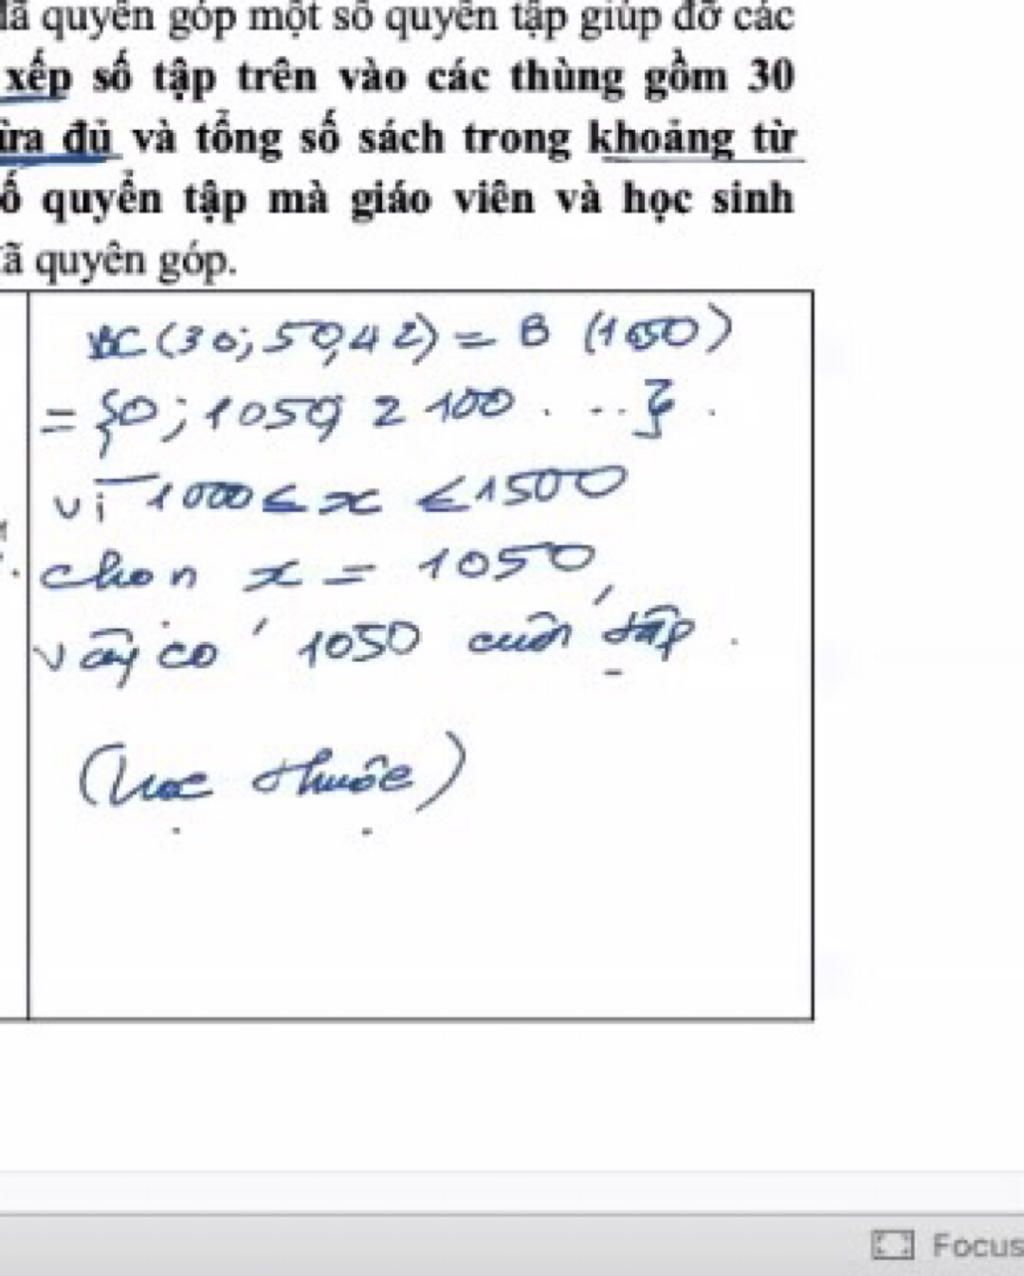 đã quyên góp một số quyển tập giúp đỡ các
xếp số tập trên vào các thùng gồm 30
ừa đủ và tổng số sách trong khoảng từ
ố quyển tập mà giáo viên và học sinh
ã quyên góp.
BC (30; 50, 42) = B (1050)
= {0; 1050; 2100 . ... } .
vì 1000 ≤ x ≤ 1500
chọn x = 1050,
vậy có 1050 cuốn tập .
(học thuộc)
Focus